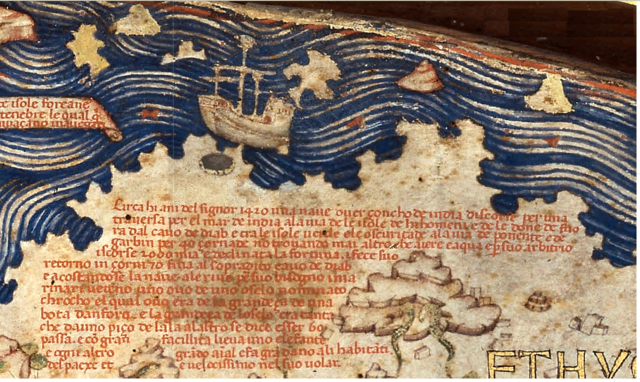 te isole foreane
tenebre le qual
Circa hi ani del signor 1420 una naue ouer concho de india discorse per una
trauersa per el mar de india a la uia de le isole de hi homeni e de le done de fuo
ra dal cauo de diab e tra le isole uerde e le oscuritade a la uia de ponente e de
garbin per 40 cornade non trouando mai altro che aiere e aqua e per suo arbitrio
iscorse 2000 mia e declinata la fortuna i fece suo
retorno in corni 70 fina al sopradito cauo de diab
e acostandose la naue a le riue per suo bisogno i ma
rinari uedeno uno ouo de uno oselo nominato
chrocho el qual ouo era de la grandeça de una
bota d'anfora e la grandeça de l'oselo era tanta
che da uno piço de l'ala a l'altro se dice esser 60
passa e con gran facillita lieua uno elefante
e ogni altro grado animal e fa gran dano a li habitati
del paexe et e uelocissimo nel suo uolar.
ETHYO